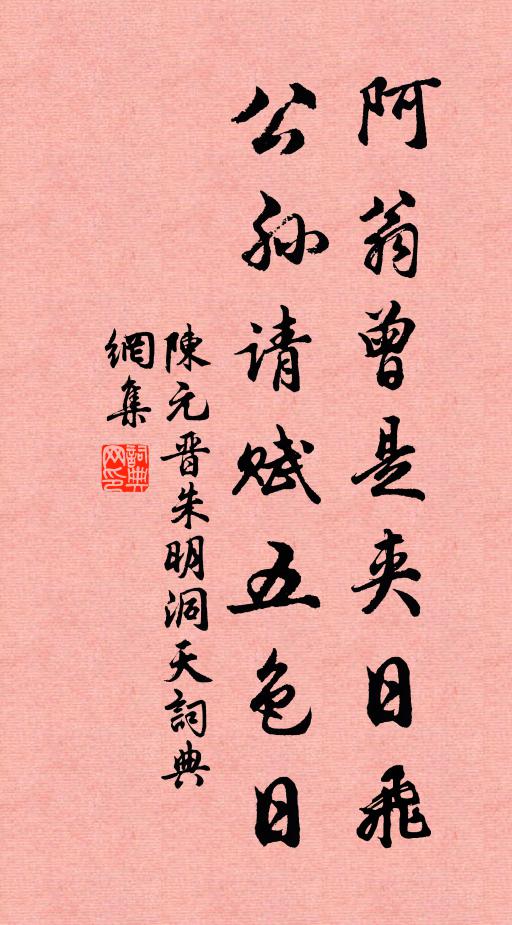 阿翁曾是夹日飛
公孙请赋五色日
陳元晋朱明洞天詞典
網集
詞典
网印